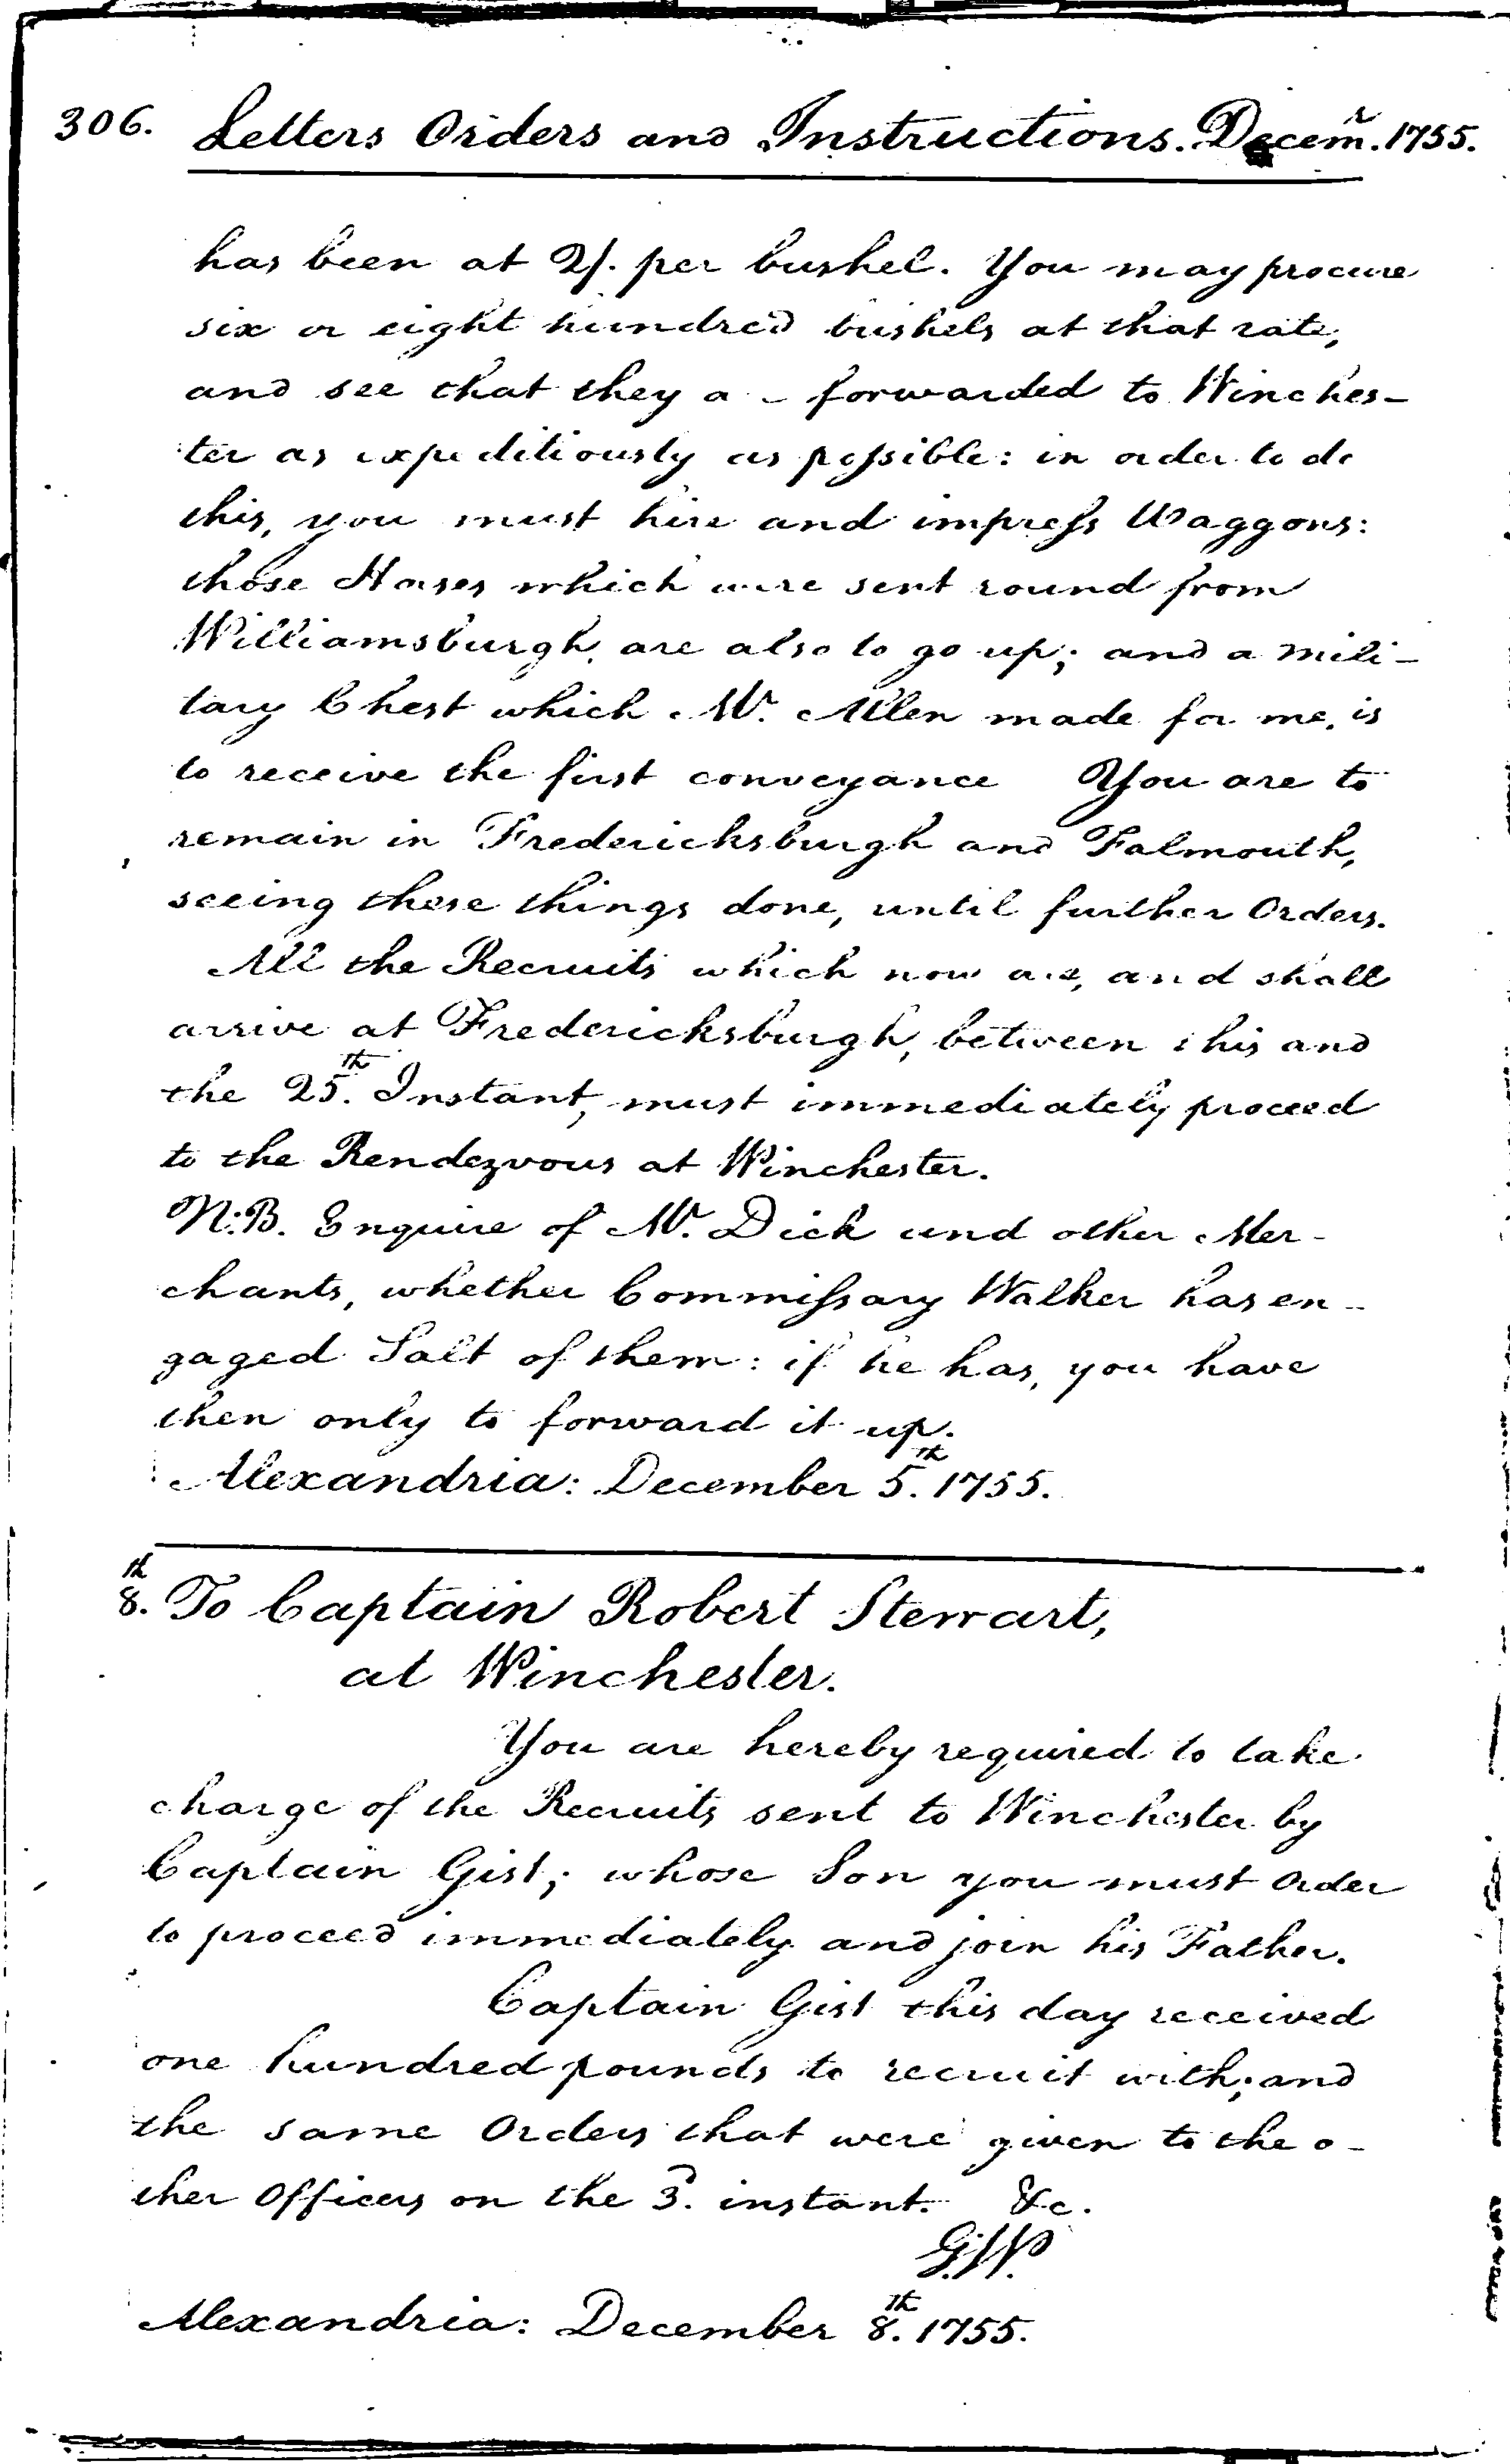 306. Letters Orders and Instructions. Decemr. 1755.
has been at 2/. per bushel. You may procure
six or eight hundred bushels at that rate,
and see that they a e forwarded to Winches-
ter as expeditiously as possible: in order to do
this, you must hire and impress Waggons:
those Horses which were sent round from
Williamsburgh, are also to go up; and a mili-
tary Chest which Mr. Allen made for me, is
to receive the first conveyance You are to
remain in Fredericksburgh and Falmouth,
seeing these things done, until further Orders.
All the Recruits which now are, and shall
arrive at Fredericksburgh, between this and
the 25th. Instant, must immediately proceed
to the Rendezvous at Winchester.
N:B. Enquire of Mr. Dick and other Mer-
chants, whether Commissary Walker has en-
gaged Salt of them: if he has, you have
then only to forward it up.
Alexandria: December 5th. 1755.
8th. To Captain Robert Stewart,
at Winchester.
You are hereby required to take
charge of the Recruits sent to Winchester by
Captain Gist; whose Son you must order
to proceed immediately and join his Father.
Captain Gist this day received
one hundred pounds to recruit with; and
the same Orders that were given to the o-
ther Officers on the 3d. instant. &c.
G:W.
Alexandria: December 8th. 1755.